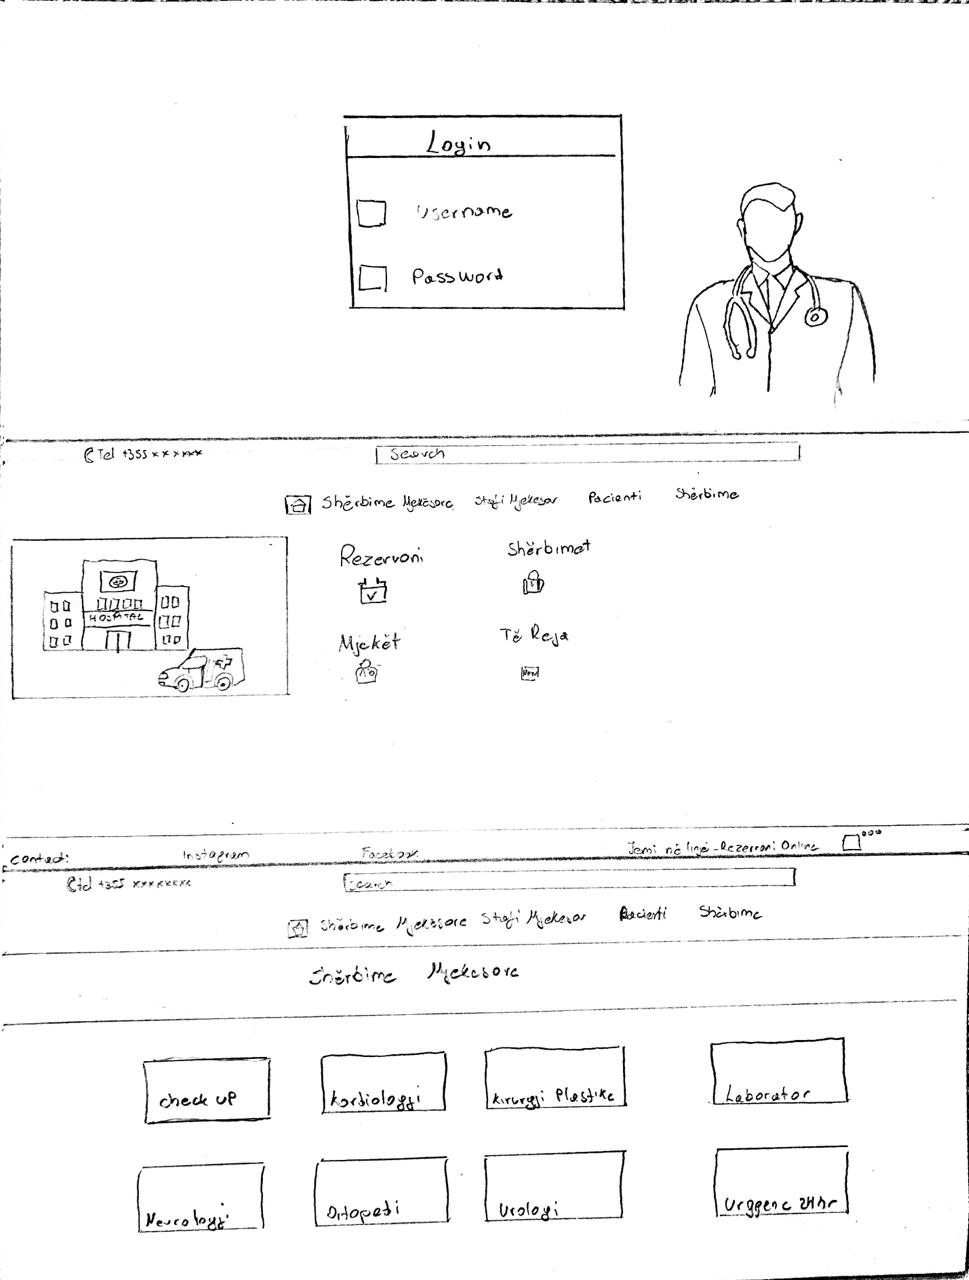 Login
Username
Password
Tel +355 xxxxxx
Search
Shërbime Mjekësore Stafi Mjekesor Pacienti Shërbime
Rezervoni Shërbimet
HOSPITAL
Mjekët Të Reja
Contact: Instagram Facebook Jemi në linjë - Rezervoni Online
tel +355 xxxxxxxx Search
Shërbime Mjekësore Stafi Mjekesor Pacienti Shërbime
Shërbime Mjekesore
check up Kardiologji Kirurgji Plastike Laborator
Neurologji Ortopedi Urologi Urggenc 24hr